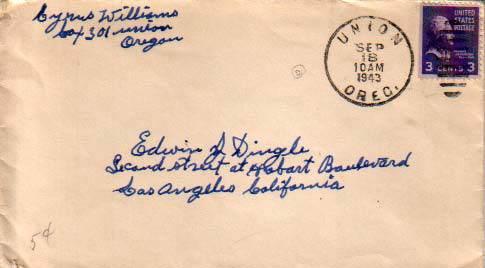 Cyprus Williams
Box 301 Union
Oregon
UNION
SEP
18
10AM
1943
OREG.
UNITED
STATES
POSTAGE
3 CENTS 3
Edwin J Dingle
Second street at Hobart Boulevard
Los Angeles California
5¢